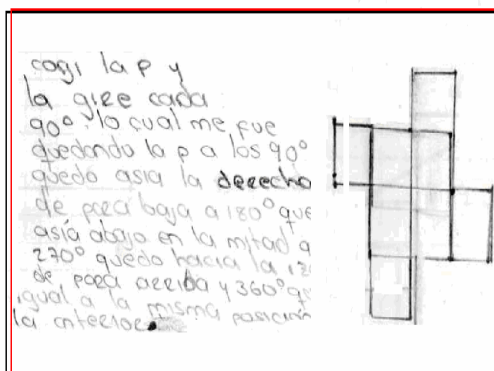 cogi la P y
la gire cada
90°. lo cual me fue
quedando la p a los 90°
quedo asia la derecho
de para baja a 180° que
asía abajo en la mitad a
270° quedo hacia la iz
de para arriba y 360° q
igual a la misma posición
la anterior.